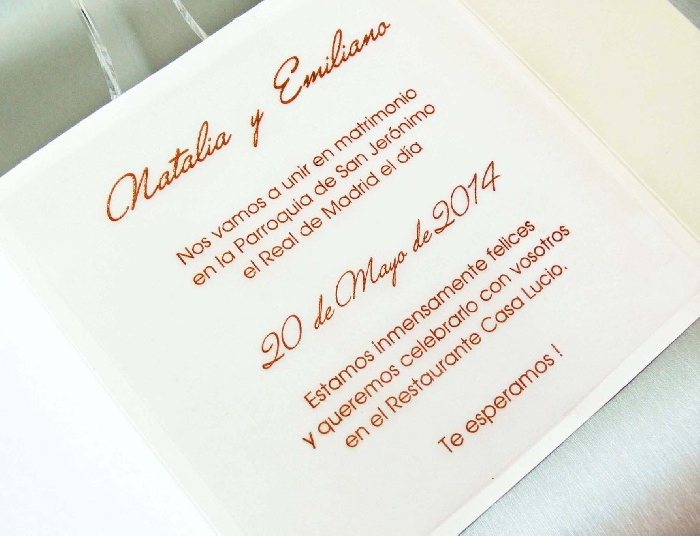 Natalia y Emiliano
Nos vamos a unir en matrimonio
en la Parroquia de San Jerónimo
el Real de Madrid el día
20 de Mayo de 2014
Estamos inmensamente felices
y queremos celebrarlo con vosotros
en el Restaurante Casa Lucio.
Te esperamos !